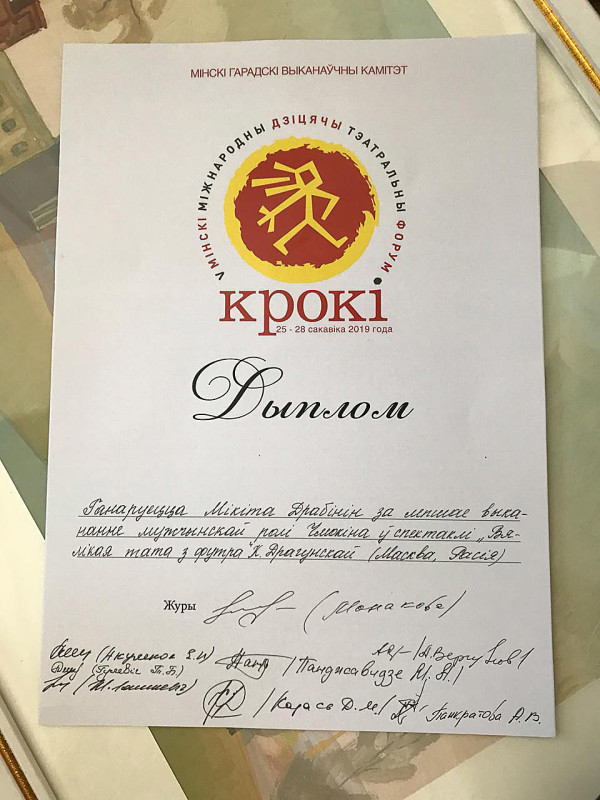 МІНСКІ ГАРАДСКІ ВЫКАНАЎЧЫ КАМІТЭТ
V МІНСКІ МІЖНАРОДНЫ ДЗІЦЯЧЫ ТЭАТРАЛЬНЫ ФОРУМ
крокі
25 - 28 сакавіка 2019 года
Дыплом
Ганаруецца Мікіта Драбінін за лепшае выка-
нанне мужчынскай ролі Чмокіна ў спектаклі „Вя-
лікая тата з футра" К. Драгунскай (Масква, Расія)
Журы (Монакова)
(Гуревіч Т.Б.) /Панджавидзе
/Караса Д.М./ Панкратова А.В.